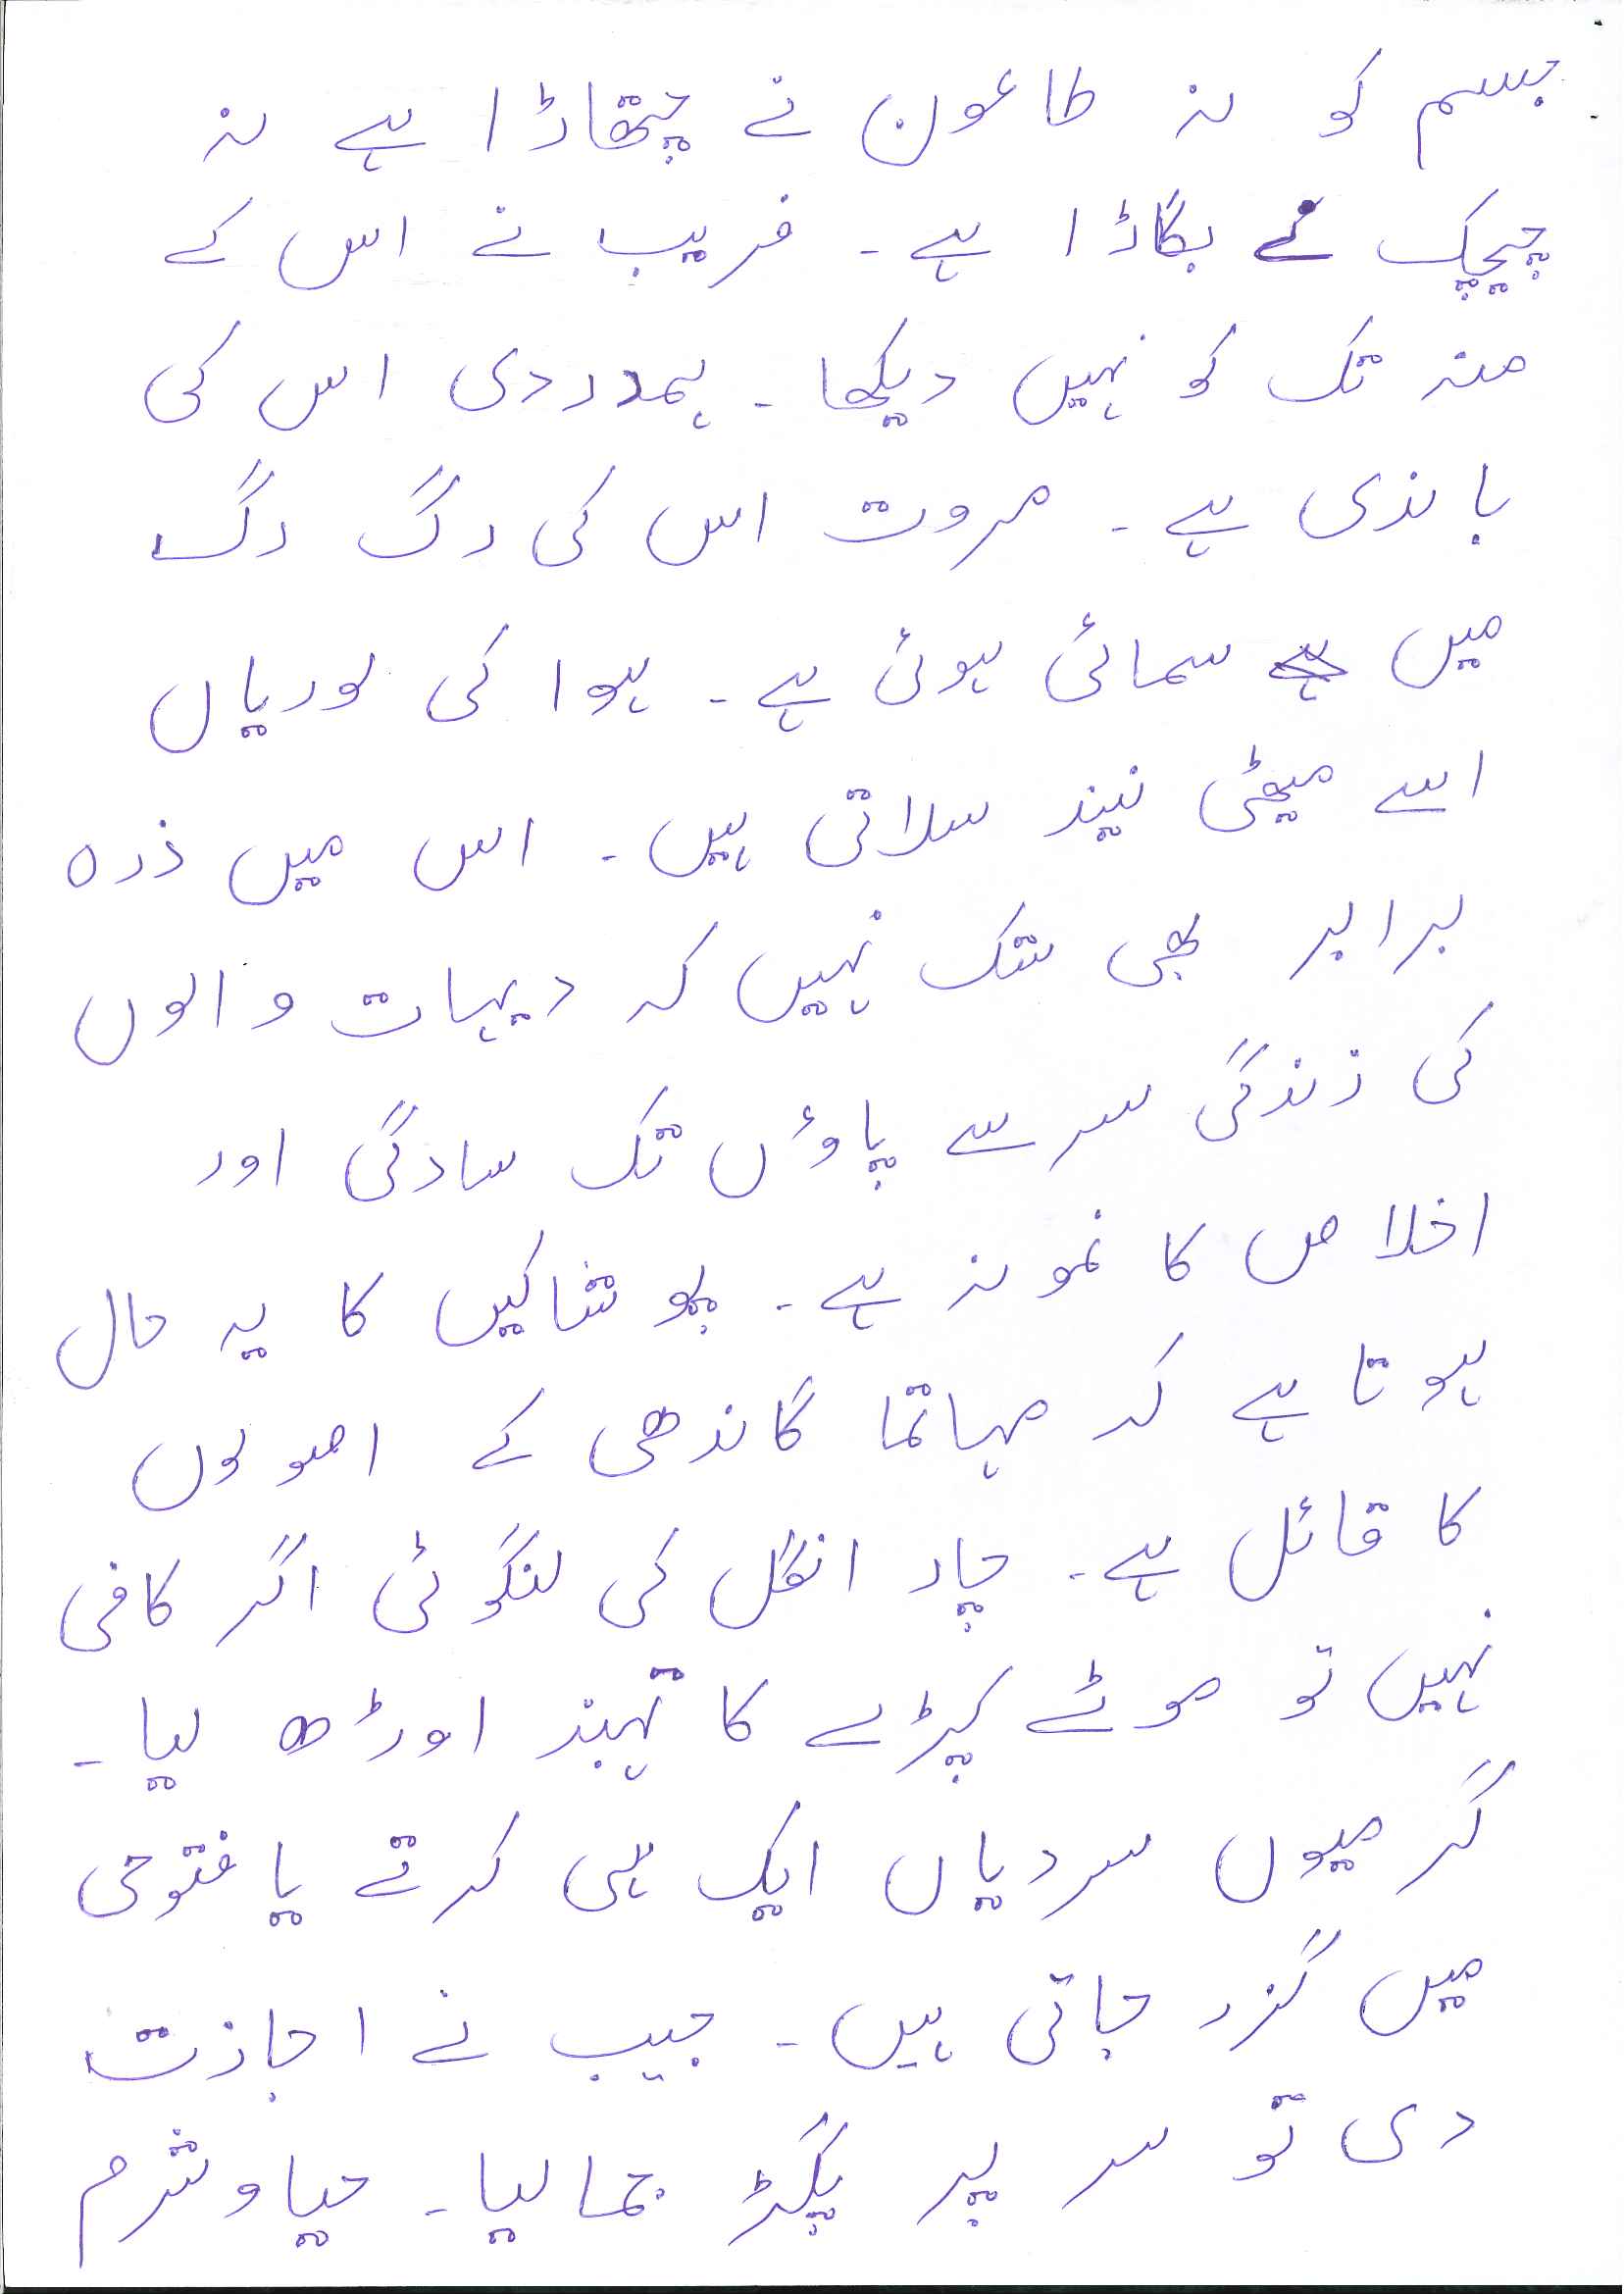 جسم کو نہ طاعون نے چتھاڑا ہے نہ
چیچک نے بگاڑا ہے۔ فریب نے اس کے
منہ تک کو نہیں دیکھا۔ ہمدردی اس کی
باندی ہے۔ مروت اس کی رگ رگ
میں سمائی ہوئی ہے۔ ہوا کی لوریاں
اسے میٹھی نیند سلاتی ہیں۔ اس میں ذرہ
برابر بھی شک نہیں کہ دیہات والوں
کی زندگی سر سے پاؤں تک سادگی اور
اخلاص کا نمونہ ہے۔ پوشاکیں کا یہ حال
ہوتا ہے کہ مہاتما گاندھی کے اصولوں
کا قائل ہے۔ چار انگل کی لنگوٹی اگر کافی
نہیں تو موٹے کپڑے کا تہبند اوڑھ لیا۔
گرمیوں سردیاں ایک ہی کرتے یا فتوحی
میں گزر جاتی ہیں۔ جیب نے اجازت
دی تو سر پر پگڑ جما لیا۔ حیا و شرم